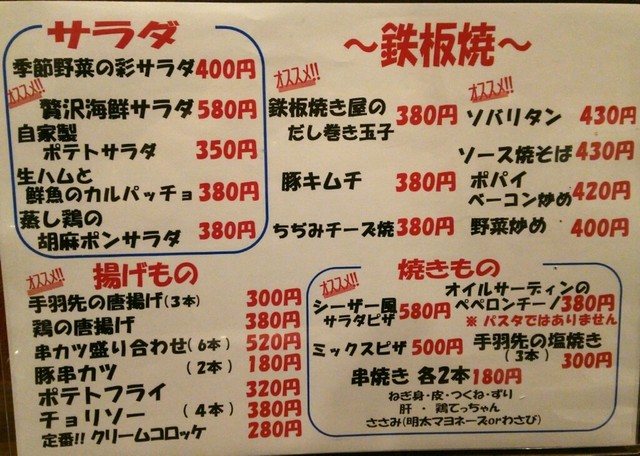 サラダ
季節野菜の彩サラダ400円
オススメ!!
贅沢海鮮サラダ 580円
自家製
ポテトサラダ 350円
生ハムと
鮮魚のカルパッチョ 380円
蒸し鶏の
胡麻ポンサラダ 380円
～鉄板焼～
オススメ!!
鉄板焼き屋の
だし巻き玉子 380円
豚キムチ 380円
ちぢみチーズ焼 380円
オススメ!!
ソバリタン 430円
ソース焼そば 430円
ポパイ
ベーコン炒め 420円
野菜炒め 400円
オススメ!!
揚げもの
手羽先の唐揚げ(3本) 300円
鶏の唐揚げ 380円
串カツ盛り合わせ(6本) 520円
豚串カツ (2本) 180円
ポテトフライ 320円
チョリソー (4本) 380円
定番!!クリームコロッケ 280円
焼きもの
オススメ!!
シーザー風
サラダピザ 580円
ミックスピザ 500円
オイルサーディンの
ペペロンチーノ380円
※ パスタではありません
手羽先の塩焼き
(3本) 300円
串焼き 各2本 180円
ねぎ身・皮・つくね・ずり
肝・鶏てっちゃん
ささみ(明太マヨネーズorわさび)